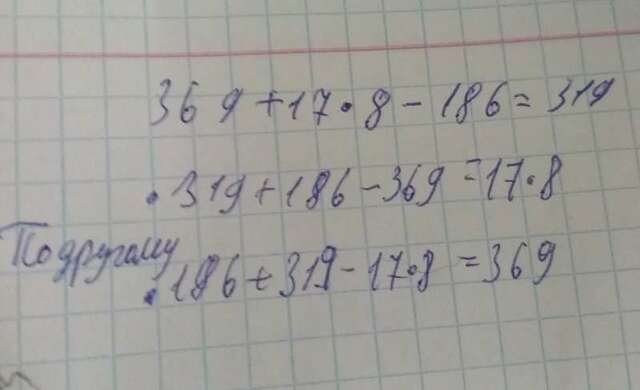 369+17·8-186=319
·319+186-369=17·8
По другому
·186+319-17·8=369